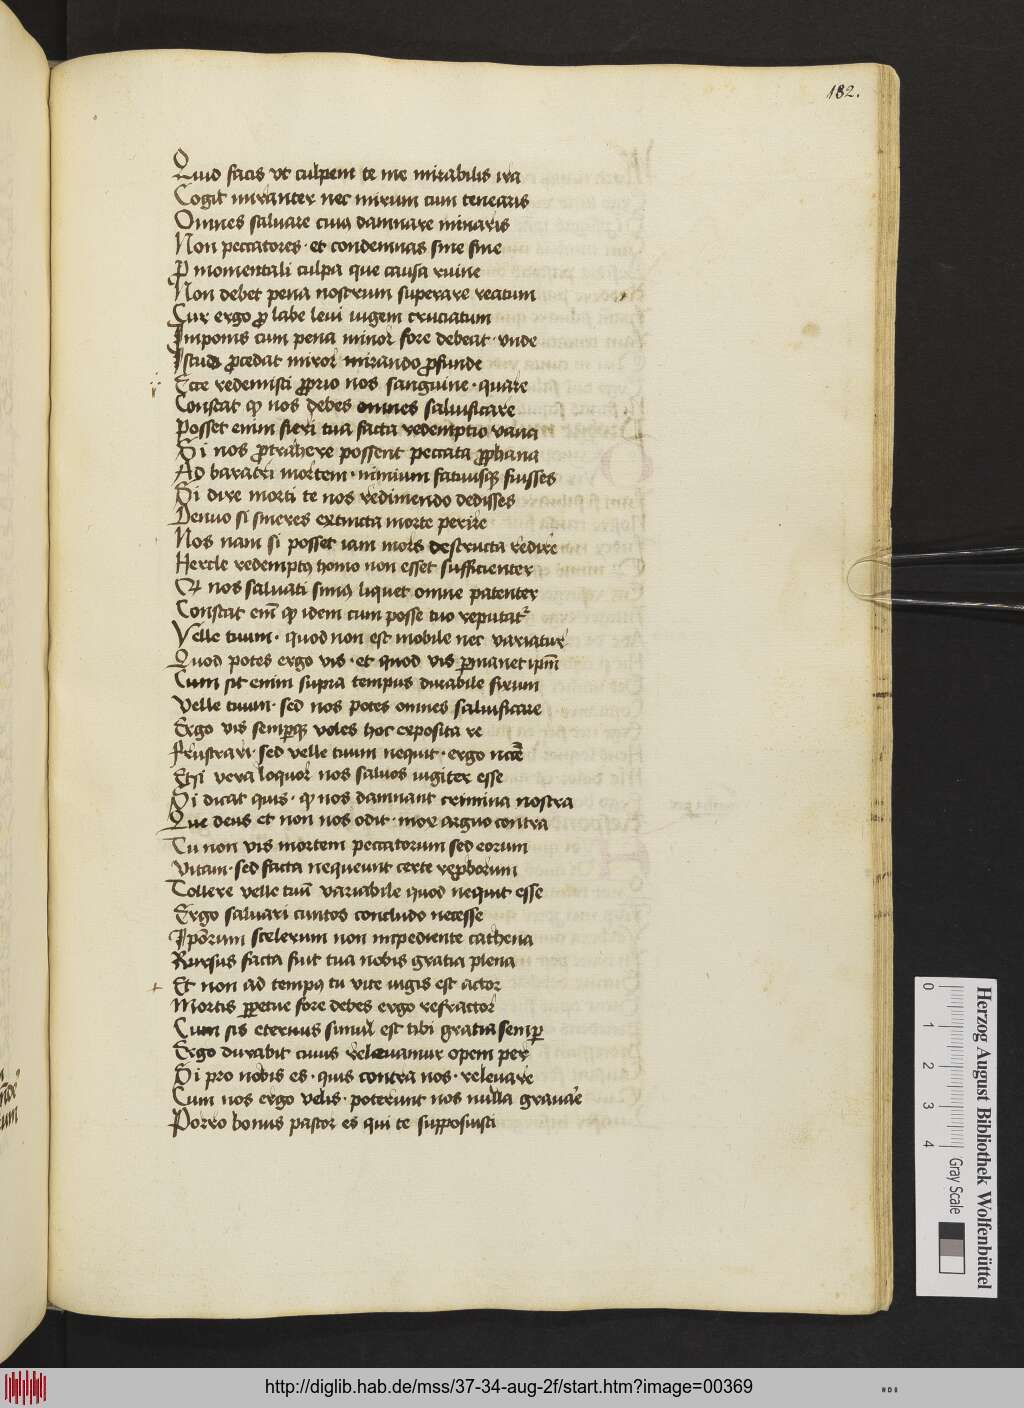 182.
Quid facis vt culpem te me mirabilis ira
Cogit miranter nec mirum cum tenearis
Omnes saluare cuiꝰ damnare minaris
Non peccatores · et condemnas sine fine
ꝓ momentali culpa que causa ruine
Non debet pena nostrum superare reatum
Cur ergo ꝓ labe leui iugem cruciatum
Imponis cum pena minor fore debeat · vnde
Istud ꝓcedat miror mirando ꝓfunde
Ecce redemisti ꝓprio nos sanguine · quare
Constat ꝙ nos debes omnes saluificare
Posset enim fieri tua facta redemptio vana
Si nos ꝓtrahere possent peccata ꝓphana
Ad baratri mortem · nimium fatuusqꝫ fuisses
Si dire morti te nos redimendo dedisses
Denuo si sineres extincta morte perire
Nos nam si posset iam mors destructa redire
Hercle redemptꝰ homo non esset sufficienter
Et nos saluati simꝰ liquet omne patenter
Constat em̄ ꝙ idem cum posse tuo reputatꝛ
Velle tuum · quod non est mobile nec variatur
Quod potes ergo vis · et quod vis ꝑmanet ip̄m
Cum sit enim supra tempus durabile fixum
Velle tuum · sed nos potes omnes saluificare
Ergo vis semꝑqꝫ voles hoc exposita re
Frustrari · sed velle tuum nequit · ergo nc̄cē
Etsi vera loquor nos saluos iugiter esse
Si dicat quis · ꝙ nos damnant crimina nostra
Que deus et non nos odit · mox arguo contra
Tu non vis mortem peccatorum sed eorum
Vitam · sed facta nequeunt certe reꝓborum
Tollere velle tuū variabile quod nequit esse
Ergo saluari cuntos concludo necesse
Ip̄orum scelerum non inpediente cathena
Rursus facta fuit tua nobis gratia plena
Et non ad tempꝰ tu vite iugis est actor
Mortis ꝑpetue fore debes ergo refractor
Cum sis eternus simul est tibi gratia semꝑ
Ergo durabit cuius releuamur opem per
Si pro nobis es · quis contra nos · releuare
Cum nos ergo velis · poterunt nos nulla grauar̄e
Porro bonus pastor es qui te supposuisti
Herzog August Bibliothek Wolfenbüttel
0 1 2 3 4 Gray Scale
http://diglib.hab.de/mss/37-34-aug-2f/start.htm?image=00369